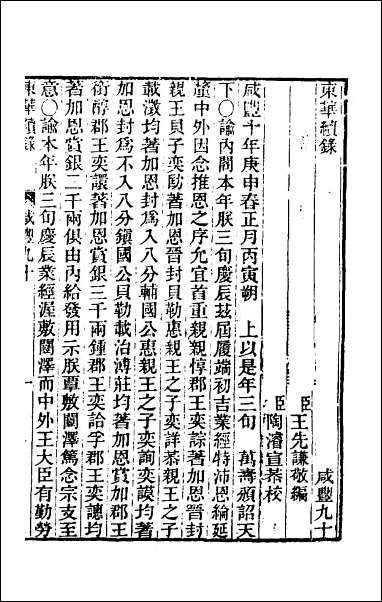 東華續錄　咸豐九十
臣王先謙敬編
臣陶濬宣恭校
咸豐十年庚申春正月丙寅朔　上以是年三旬　萬壽頒詔天
下〇諭內閣本年朕三旬慶辰茲屆履端初吉業經特沛恩綸延
釐中外因念推恩之序允宜首重親親惇郡王奕誴著加恩晉封
親王貝子奕劻著加恩晉封貝勒惠親王之子奕詳恭親王之子
載澂均著加恩封為入八分輔國公惠親王之子奕詢奕謨均著
加恩封為不入八分鎮國公貝勒載治溥莊均著加恩賞加郡王
銜醇郡王奕譞著加恩賞銀三千兩鍾郡王奕詥孚郡王奕譓均
著加恩賞銀二千兩俱由內給發用示朕覃敷闓澤篤念宗支至
意〇諭本年朕三旬慶辰業經渥敷闓澤而中外王大臣有勤勞
東華續錄　咸豐九十　一